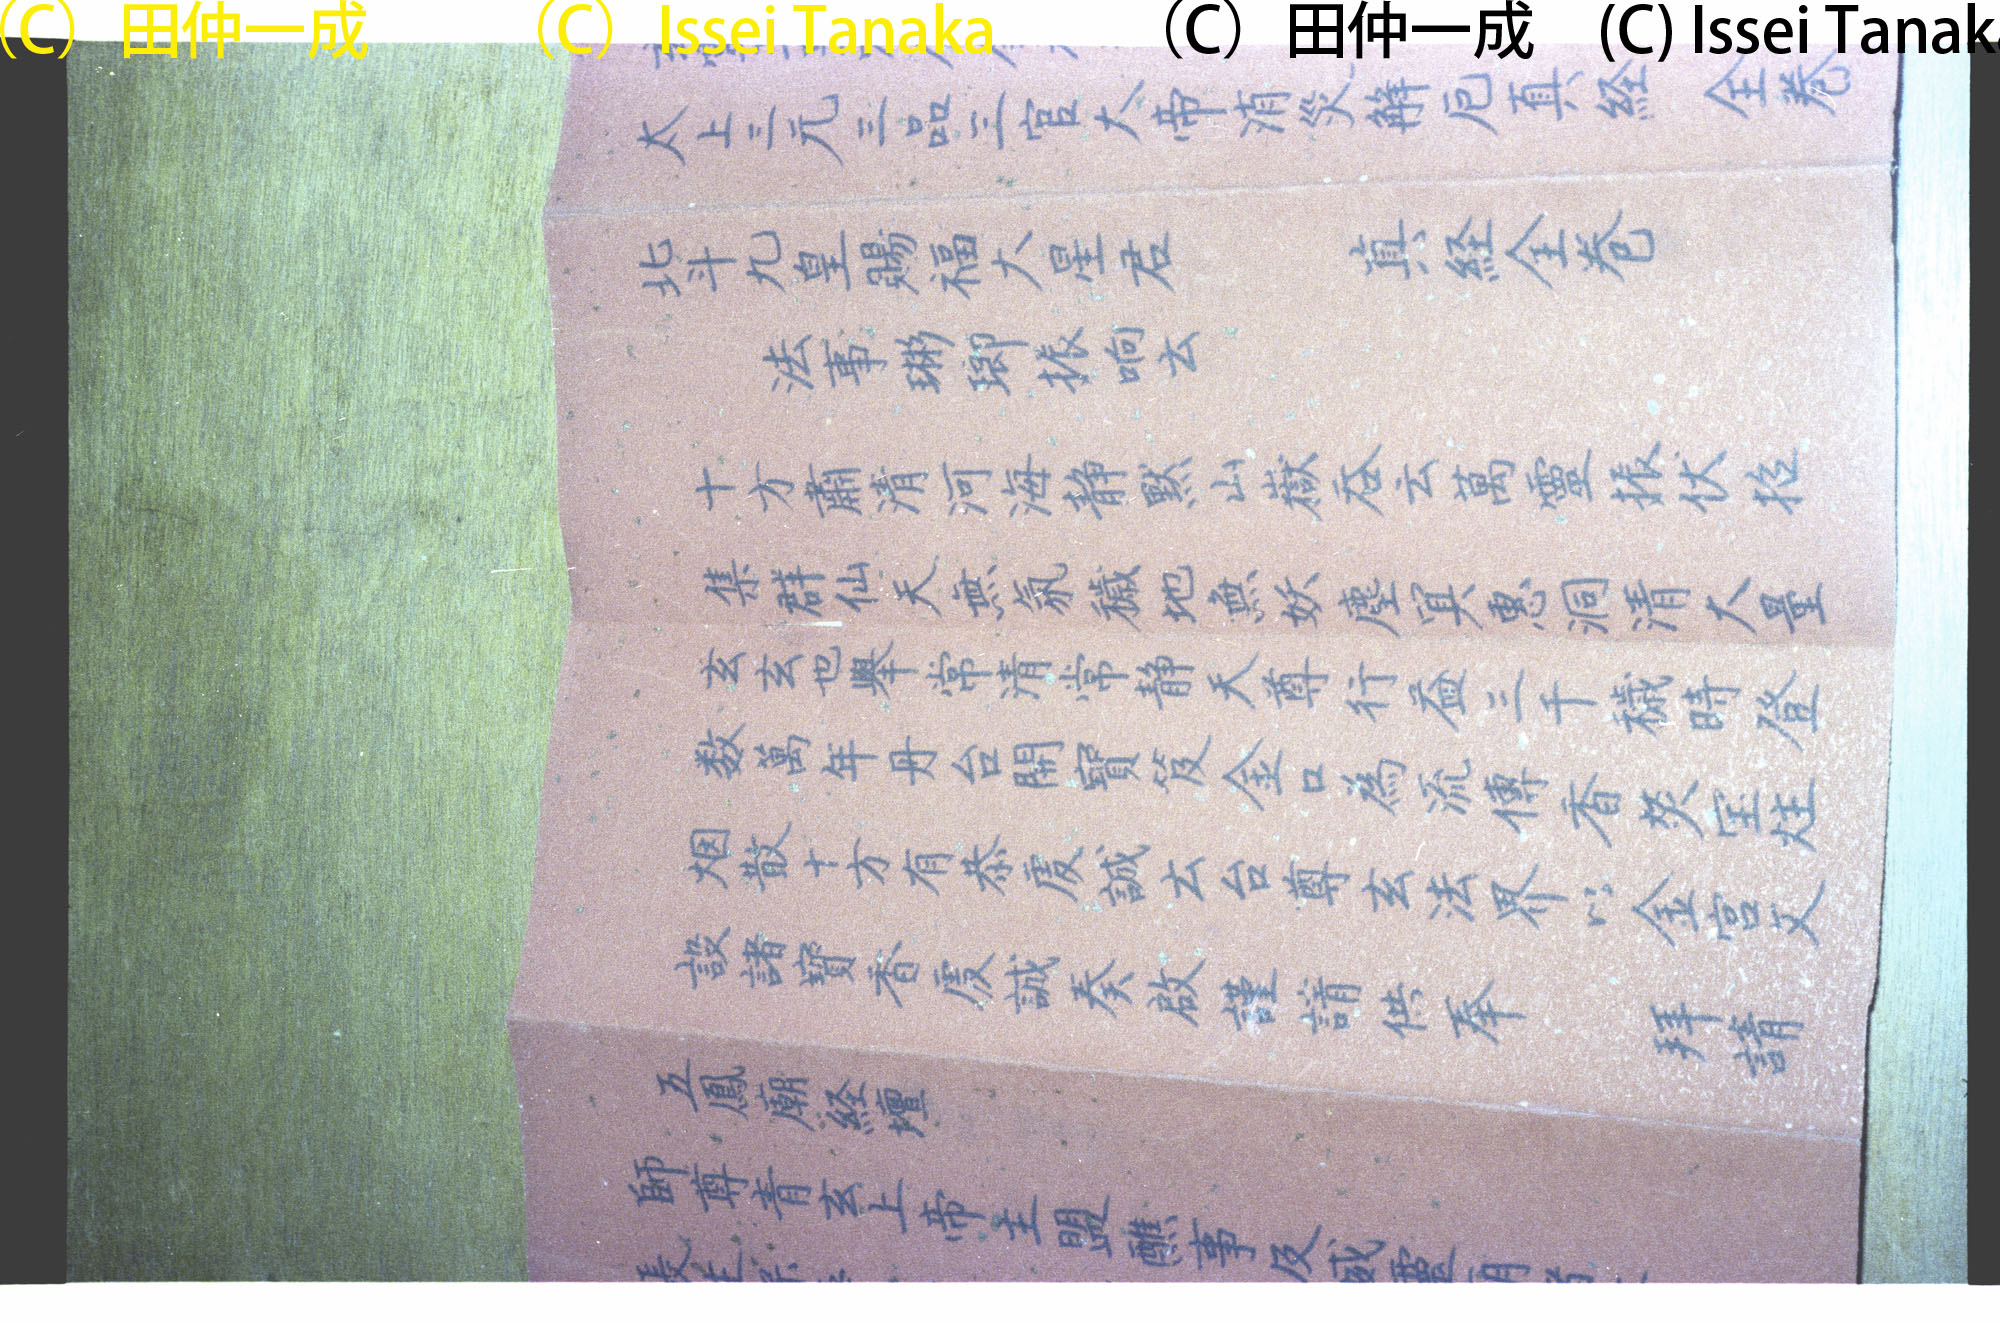 (C) 田仲一成 (C) Issei Tanaka (C) 田仲一成 (C) Issei Tanaka
太上三元三品三官大帝消災解厄真経 全卷
北斗九皇賜福大星君 真経全卷
法事琳瑯振响云
十方肅清河海静默山嶽吞云萬靈振伏招
集群仙天無氛穢地無妖塵冥慧洞清大量
玄玄也舉常清常静天尊行益三千穢時登
数萬年丹台開寶笈金口為流傳香焚宝炷
烟散十方有恭虔誠玄台尊玄法界以金宮文
設諸寶香虔誠奏啟謹請供奉 拜請
五鳳廟経壇
師尊青玄上帝主盟醮事及威靈